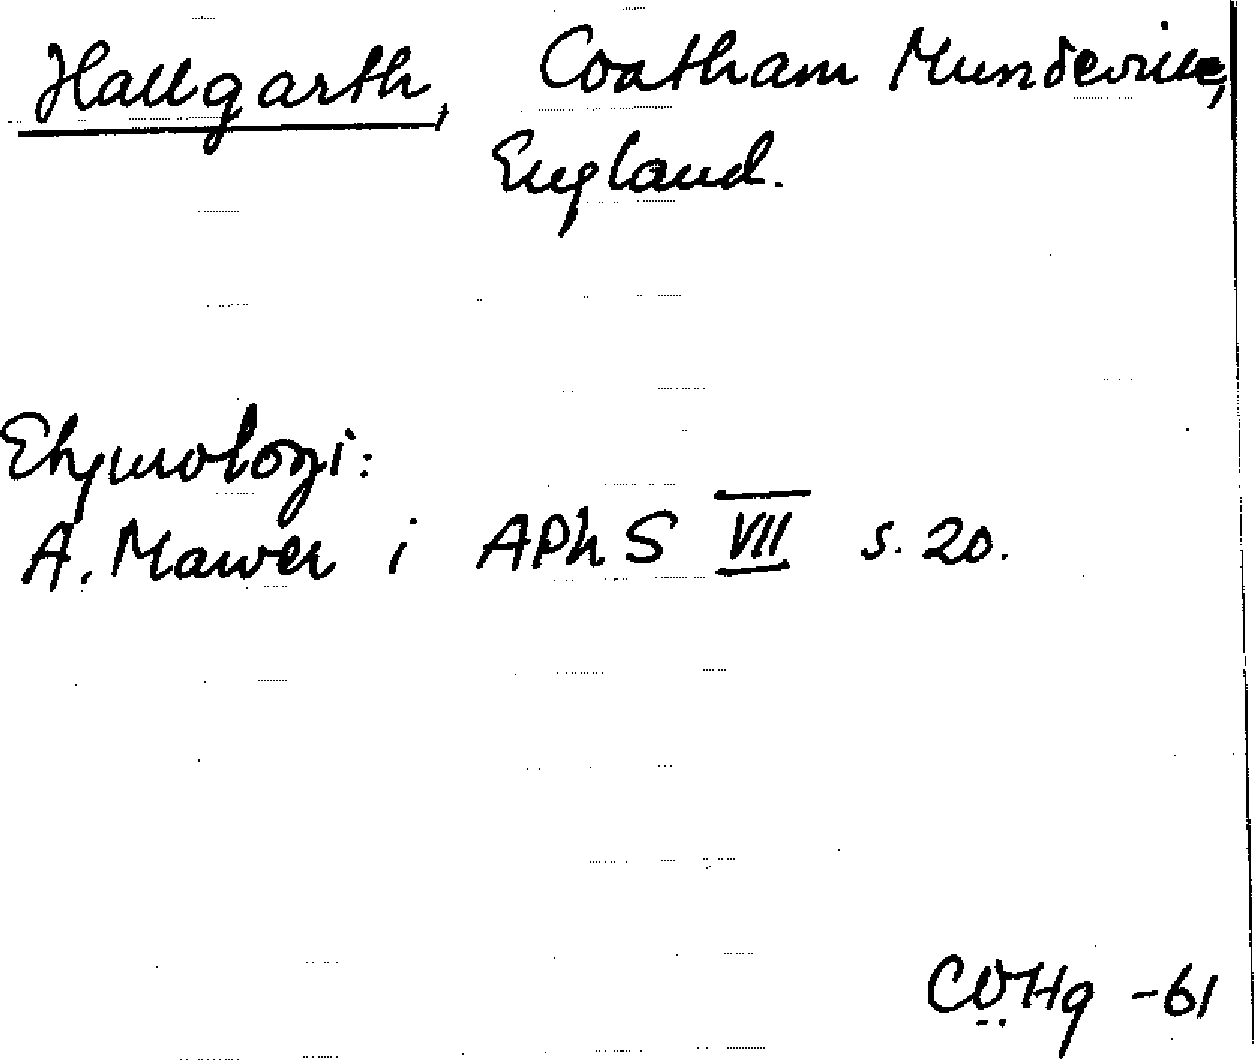 Hallgarth, Coatham Mundeville,
England.
Etymologi:
A. Mawer i APhS VII s. 20.
COHg -61